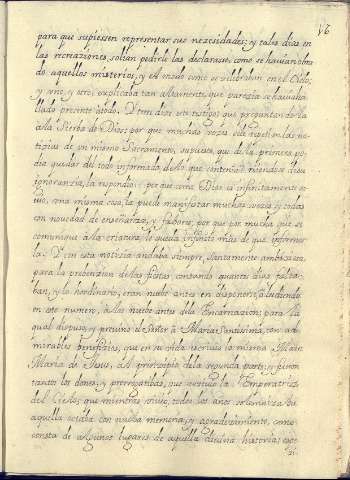 16
para que supiessen representar sus necesidades; y tales dias en
las recreaziones, solian pedirle las declarase como se havian obra
do aquellos misterios, y el modo como se zelebraban en el Cielo;
y uno, y otro, explicaba tan altamente, que parezia se havia ha
llado presente à todo. Y tres dias
à la Sierba de Dios; por que muchas vezes
de un mismo Sacramento, supuesto, que de la primera po
dia quedar del todo informada, de lo que contenia; riendose de su
ignoranzia, la respondio: que como Dios es infinitamente
una misma cosa, la puede manifestar muchas vezes, y todas
con novedad de enseñanzas, y fabores; por que por mucho que se
comunique à la criatura, le queda infinito mas de que informar
la. Y con esta notizia andaba siempre, santamente ambiziosa,
para la prebenzion de las fiestas contando quantos dias falta
ban, y lo hordinario, eran nuebe antes en disponerse, aludiendo
en este numero, à los nuebe antes de la Encarnazion; para la
qual dispuso, y previno el Señor à Maria Santissima, con ad
mirables benefizios, que en su vida escrivio la misma Madre
Maria de Jesus, al prinzipio de la segunda parte; y fueron
tantos los dones, y prerrogatibas, que reziuio la Emperatriz
del Cielo; que mientras viuio, todos los años solemnizaba
aquella octaba con nueba memoria, y agradezimiento, como
consta de algunos lugares de aquella diuina historia;